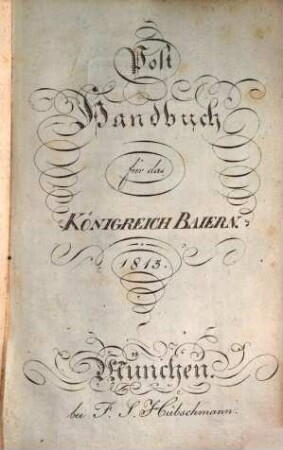 Post
Handbuch
für das
KÖNIGREICH BAIERN.
1813.
München.
bei F. S. Hübschmann.